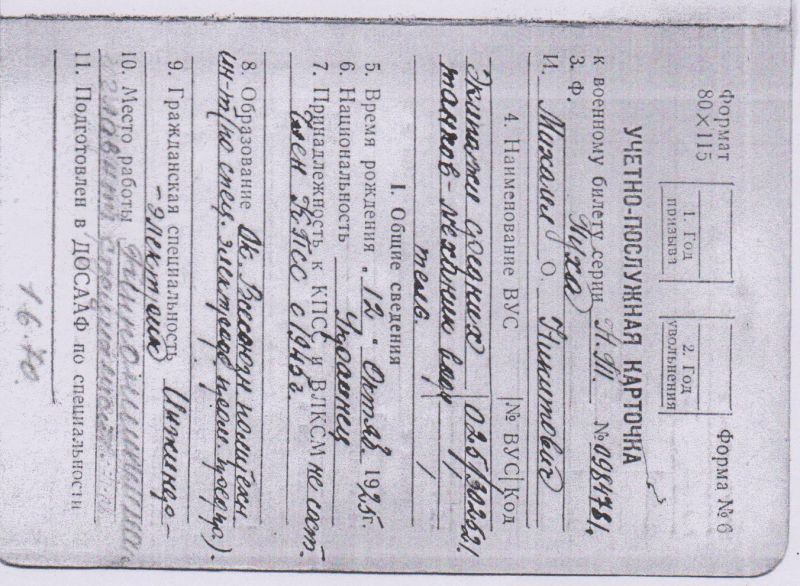 Формат
80×115
Форма № 6
1. Год
призыва
2. Год
увольнения
УЧЕТНО-ПОСЛУЖНАЯ КАРТОЧКА
к военному билету серии Н.Ш. № 0981781.
3. Ф. Пуха
И. Михаил О. Никитович
4. Наименование ВУС № ВУС Код
Экипажи средних
танков - механик
I. Общие сведения
5. Время рождения „12“ Октяб. 1925г.
6. Национальность Украинец
7. Принадлежность к КПСС и ВЛКСМ не сост.
член КПСС с 1945г.
8. Образование Ок. Всесоюзн политехн
ин-т (по спец. электрооб. пром. предпр.).
9. Гражданская специальность Инженер-
-электрик
10. Место работы
11. Подготовлен в ДОСААФ по специальности